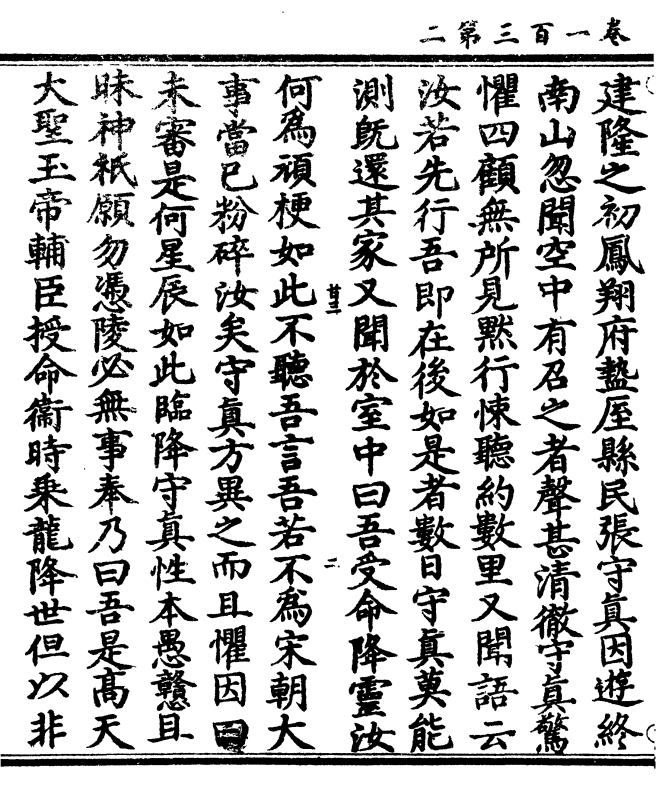 卷一百三第二
建隆之初鳳翔府盩厔縣民張守真因遊終
南山忽聞空中有召之者聲甚清徹守真驚
懼四顧無所見默行悚聽約數里又聞語云
汝若先行吾即在後如是者數日守真莫能
測既還其家又聞於室中曰吾受命降靈汝
何爲頑梗如此不聽吾言吾若不爲宋朝大
事當已粉碎汝矣守真方異之而且懼因曰
未審是何星辰如此臨降守真性本愚戇且
昧神祇願勿憑陵必無事奉乃曰吾是高天
大聖玉帝輔臣授命衞時乗龍降世但以非